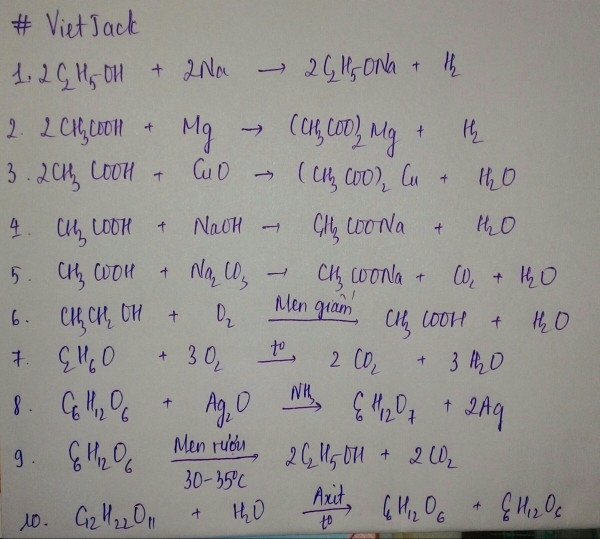 # VietJack
1. 2C₂H₅OH + 2Na → 2C₂H₅ONa + H₂
2. 2CH₃COOH + Mg → (CH₃COO)₂Mg + H₂
3. 2CH₃COOH + CuO → (CH₃COO)₂Cu + H₂O
4. CH₃COOH + NaOH → CH₃COONa + H₂O
5. CH₃COOH + Na₂CO₃ → CH₃COONa + CO₂ + H₂O
6. CH₃CH₂OH + O₂ Men giấm → CH₃COOH + H₂O
7. C₂H₆O + 3O₂ to → 2CO₂ + 3H₂O
8. C₆H₁₂O₆ + Ag₂O NH₃ → C₆H₁₂O₇ + 2Ag
9. C₆H₁₂O₆ Men rượu → 2C₂H₅OH + 2CO₂
30-35°C
10. C₁₂H₂₂O₁₁ + H₂O Axit → C₆H₁₂O₆ + C₆H₁₂O₆
to